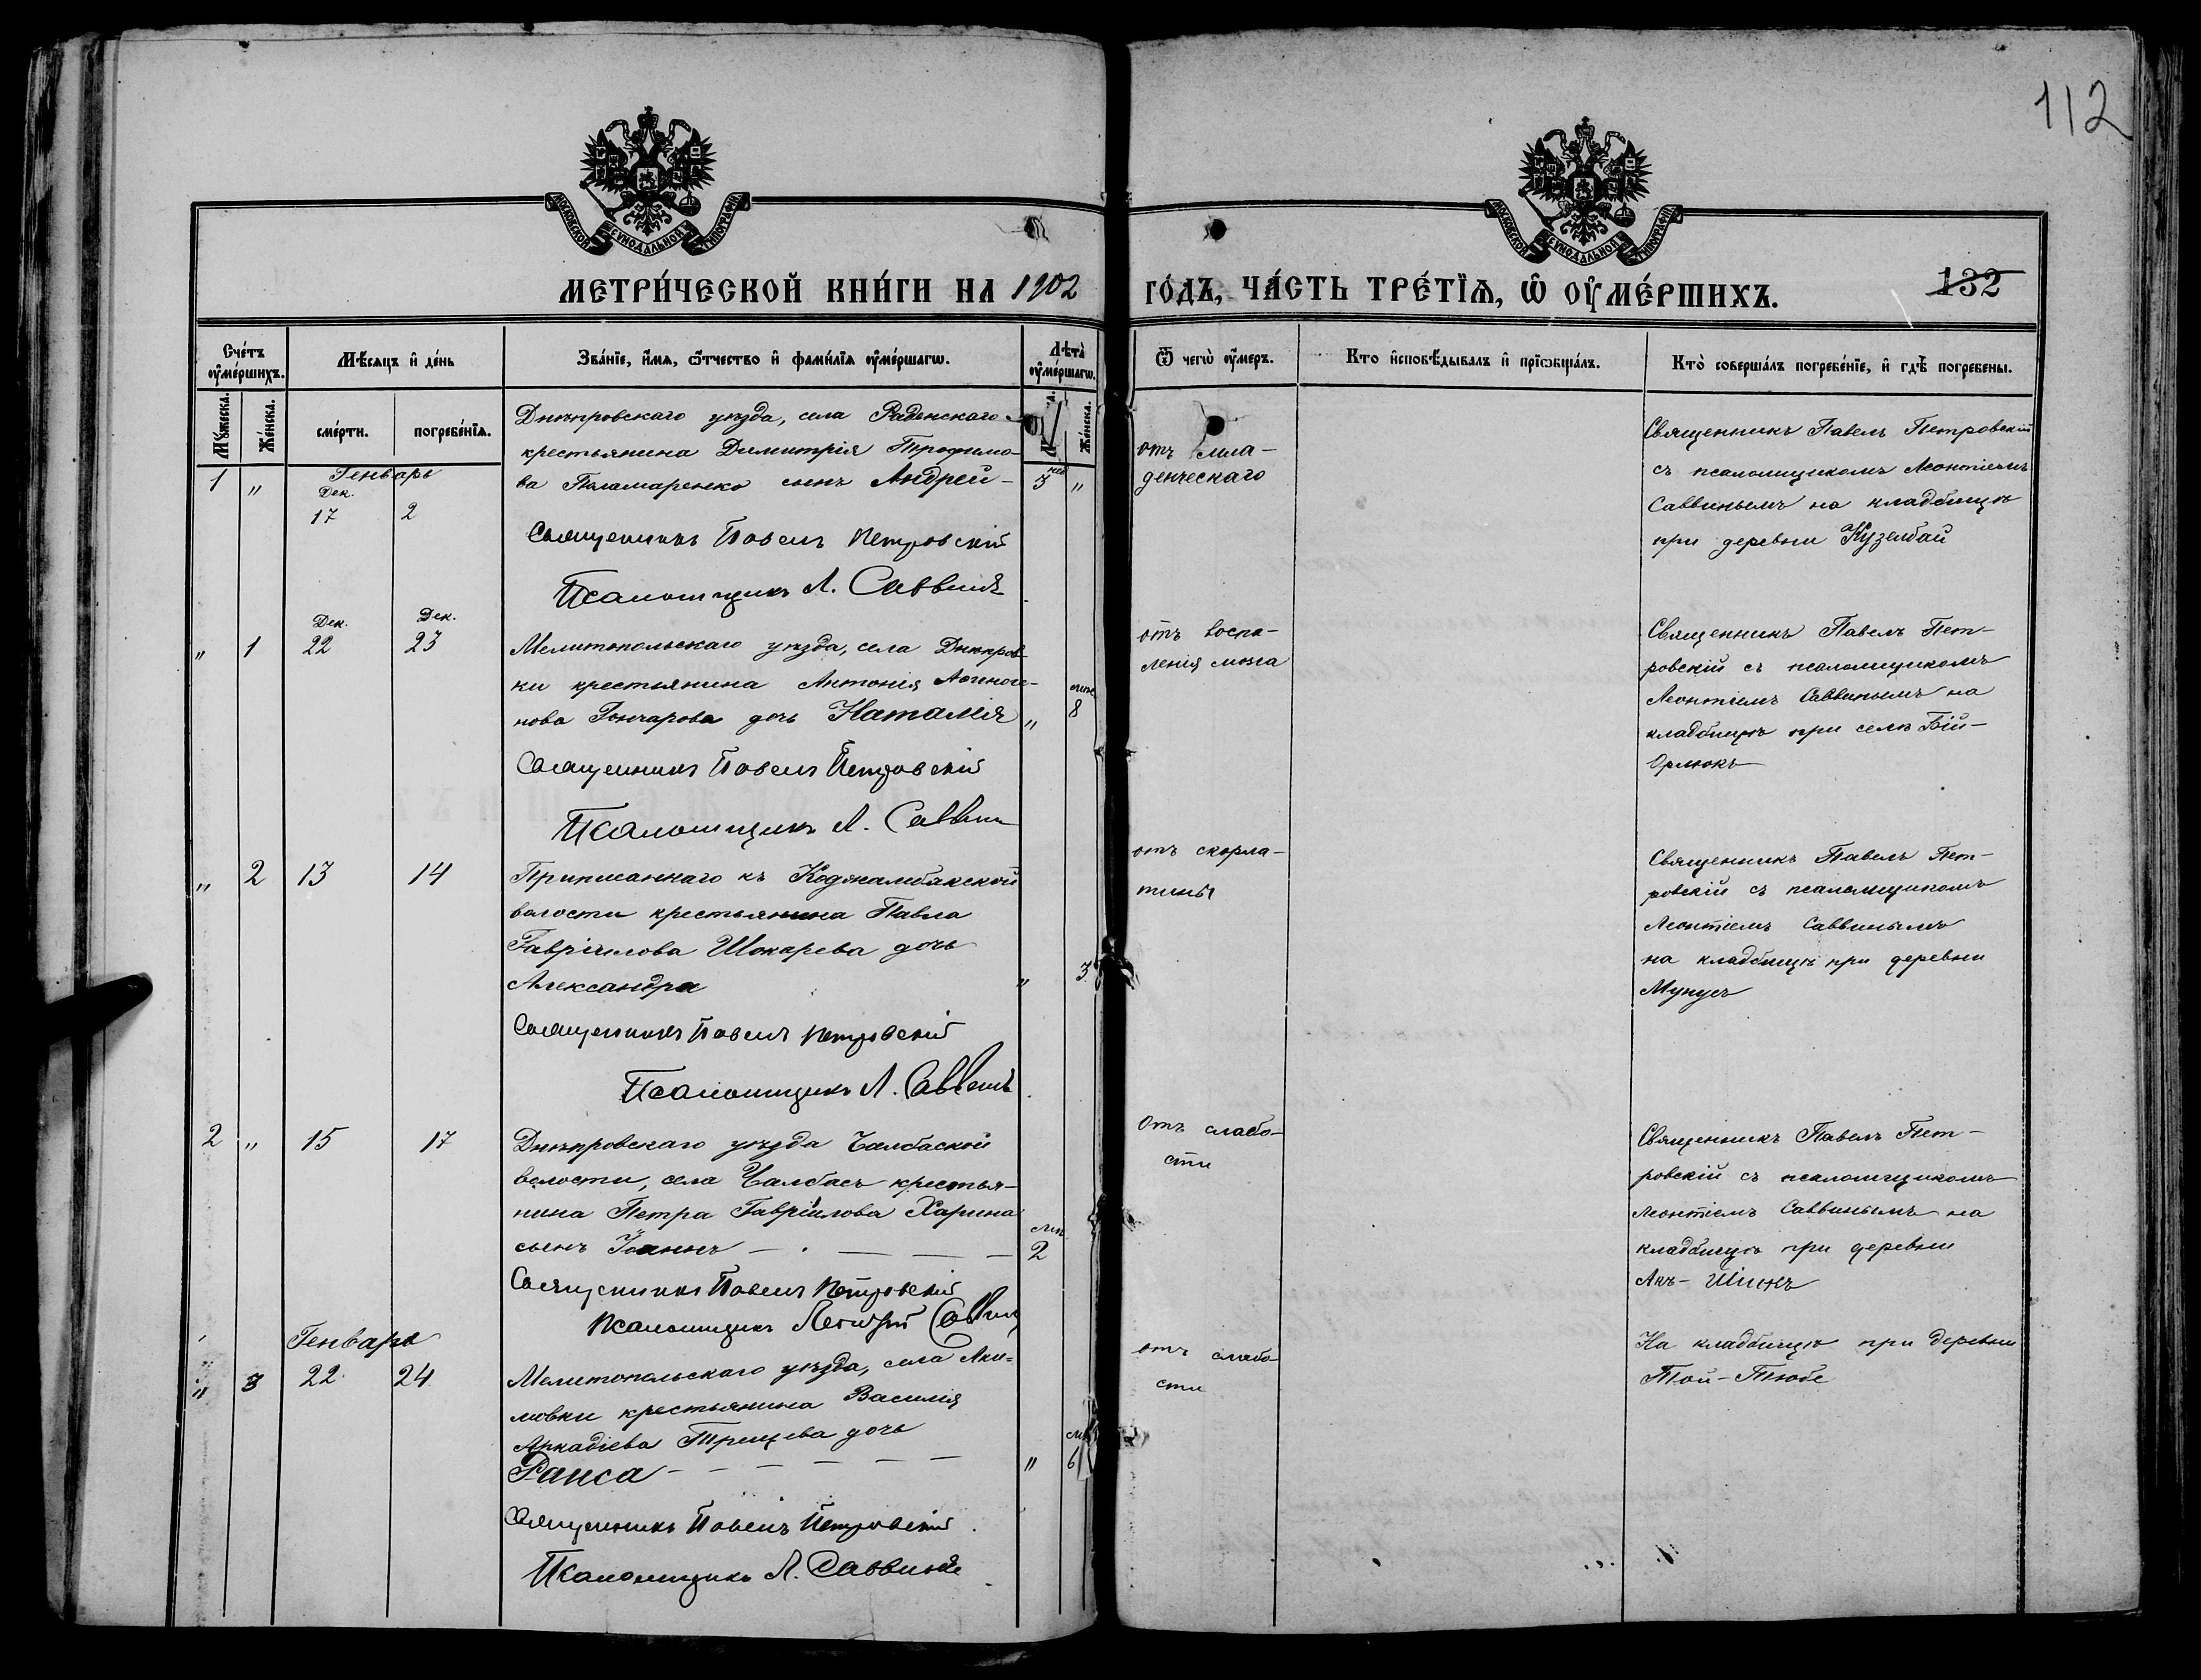 112
МОСКОВСКОЙ СУНОДАЛЬНОЙ ТИПОГРАФІИ
МОСКОВСКОЙ СУНОДАЛЬНОЙ ТИПОГРАФІИ
МЕТРИ́ЧЕСКОЙ КНИ́ГИ НА 1902 ГО́ДЪ, ЧА́СТЬ ТРЕ́ТІѦ, Ѡ҆ ОУ҆МЕ́РШИХЪ.
132
Сче́тъ оу҆ме́ршихъ.
Мѣ́сяцъ и҆ де́нь
Зва́нїе, и҆́мя, ѻ҆́тчество и҆ фами́лїя оу҆ме́ршагѡ.
Лѣта̀ оу҆ме́ршагѡ.
Ѿ чегѡ̀ оу҆́меръ.
Кто̀ и҆сповѣ́дывалъ и҆ прїѡбща́лъ.
Кто̀ соверша́лъ погребе́нїе, и҆ гдѣ̀ погребены.
Му́жеска.
Же́нска.
сме́рти.
погребе́нїя.
Же́нска.
1 " Генварь
Дек.
17 2
Днѣпровскаго уѣзда, села Раденскаго
крестьянина Димитрія Трофимо-
ва Паламаренко сынъ Андрей - 3 "
Священникъ Павелъ Петровскій
Псаломщикъ Л. Саввинъ
отъ мла-
денческаго
Священникъ Павелъ Петровскій
съ псаломщикомъ Леонтіемъ
Саввинымъ на кладбищѣ
при деревни Кузелбай
Дек. Дек.
" 1 22 23
Мелитопольскаго уѣзда, села Днѣпров
ки крестьянина Антонія Аѳиноге-
нова Гончарова дочь Наталія " 8
Священникъ Павелъ Петровскій
Псаломщикъ Л. Саввин
отъ воспа-
ленія мозга
Священникъ Павелъ Пет-
ровскій съ псаломщикомъ
Леонтіемъ Саввинымъ на
кладбищѣ при селѣ Бій-
Орлюкъ
" 2 13 14
Приписаннаго къ Коджамбакской
волости крестьянина Павла
Гавріилова Шокарева дочь
Александра " 3
Священникъ Павелъ Петровскій
Псаломщикъ Л. Саввинъ
отъ скорла-
тины
Священникъ Павелъ Пет-
ровскій съ псаломщикомъ
Леонтіемъ Саввинымъ
на кладбищѣ при деревни
Мунусъ
2 " 15 17
Днѣпровскаго уѣзда Чалбаской
волости, села Чалбасъ крестья-
нина Петра Гавріилова Харина
сынъ Іоаннъ 2
Священникъ Павелъ Петровскій
Псаломщикъ Леонтій Саввин
Отъ слабо-
сти
Священникъ Павелъ Пет-
ровскій съ псаломщикомъ
Леонтіемъ Саввинымъ на
кладбищѣ при деревни
Акъ-Шіикъ
Генварь
" 3 22 24
Мелитопольскаго уѣзда, села Аки-
мовки крестьянина Василія
Аркадіева Трещева дочь
Раиса " 6
Священникъ Павелъ Петровскій
Псаломщикъ Л. Саввинъ
отъ слабо-
сти
На кладбищѣ при деревни
Той-Тюбе